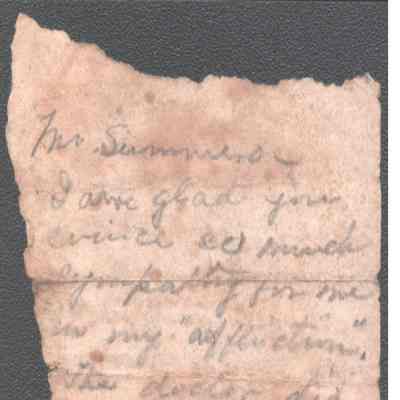 Mr Summers
I am glad you
evince so much
sympathy for me
in my "affliction".
the doctor did